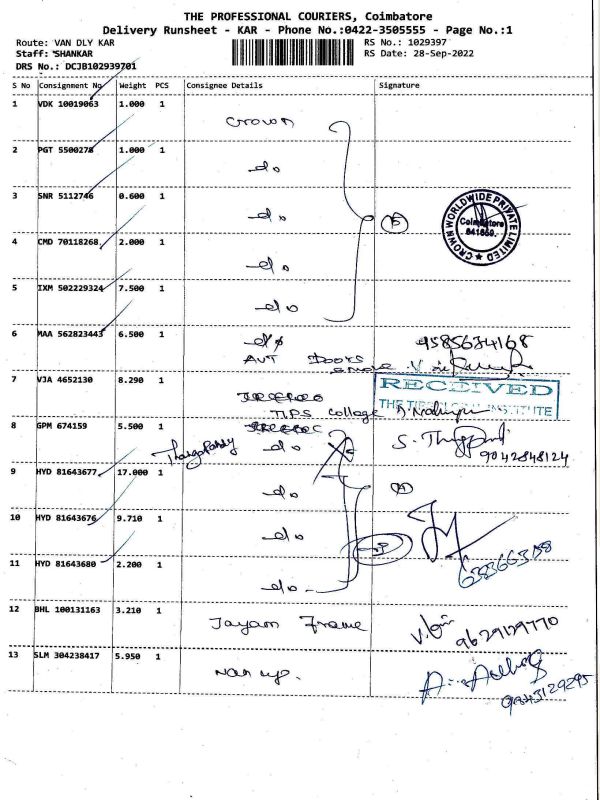 THE PROFESSIONAL COURIERS, Coimbatore
Delivery Runsheet - KAR - Phone No.:0422-3505555 - Page No.:1
Route: VAN DLY KAR
RS No.: 1029397
Staff: SHANKAR
RS Date: 28-Sep-2022
DRS No.: DCJB102939701
S No Consignment No Weight PCS Consignee Details Signature
1 VDK 10019063 1.000 1
Crown
2 PGT 5500278 1.000 1
do
3 SNR 5112746 0.600 1
do
5
CROWN WORLDWIDE PRIVATE LIMITED
Coimbatore
4 CMD 70118268 2.000 1
do
5 IXM 502229324 7.500 1
do
6 MAA 562823443 6.500 1
do
9585634168
AVT Doors
7 VJA 4652130 8.290 1
RECEIVED
TIPS College
INSTITUTE
8 GPM 674159 5.500 1
do
S.
9042848124
9 HYD 81643677 17.000 1
do
10 HYD 81643676 9.710 1
do
11 HYD 81643680 2.200 1
do
12 BHL 100131163 3.210 1
Jayam Frame
9629129770
13 SLM 304238417 5.950 1
9843129295